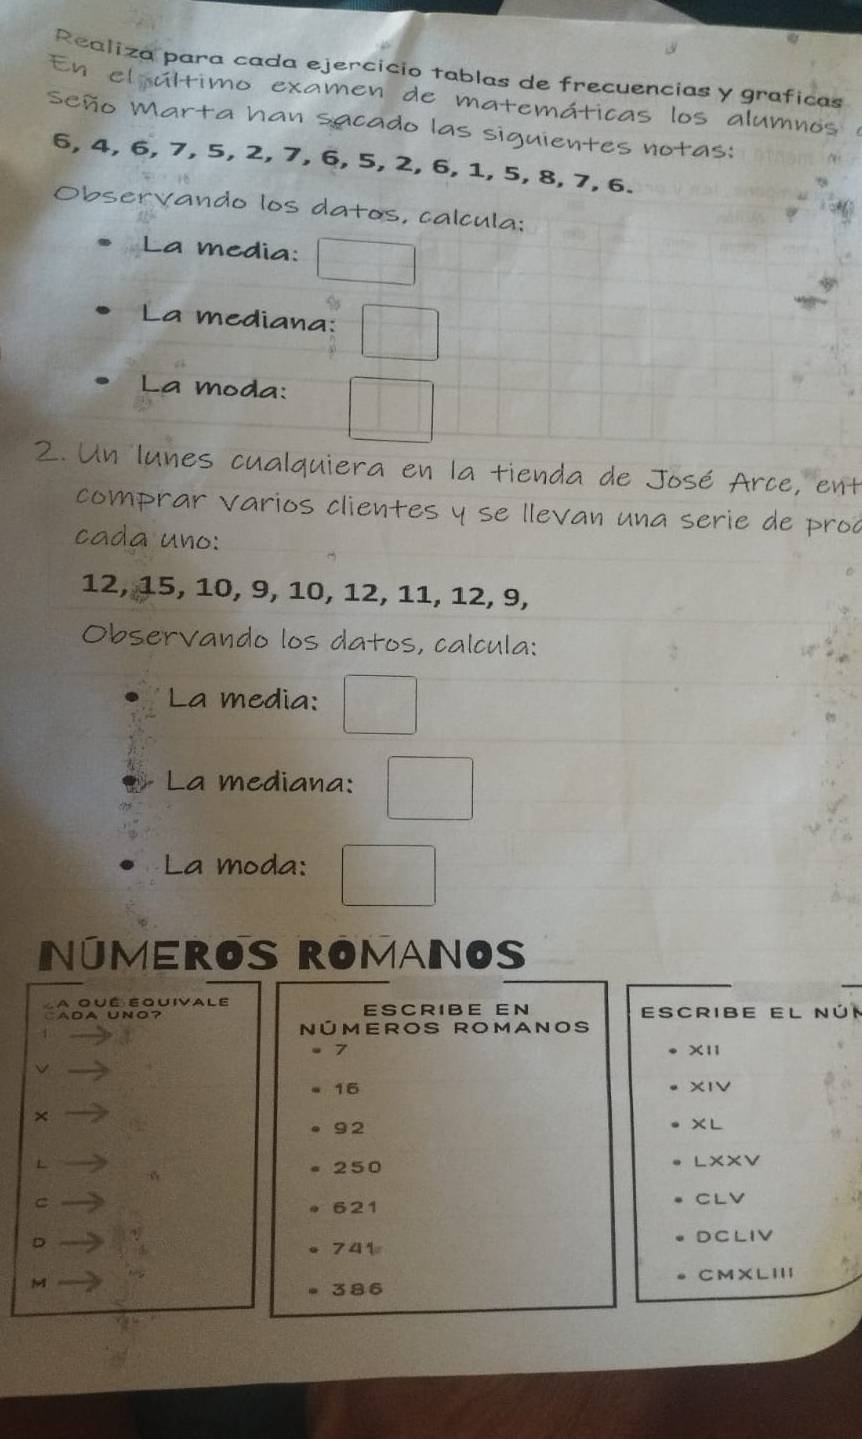 Realiza para cada ejercicio tablas de frecuencias y graficas
En el último examen de matemáticas los alumnos
seño Marta han sacado las siguientes notas:
6, 4, 6, 7, 5, 2, 7, 6, 5, 2, 6, 1, 5, 8, 7, 6.
Observando los datos, calcula:
• La media:
• La mediana:
• La moda:
2. Un lunes cualquiera en la tienda de José Arce, ent
comprar varios clientes y se llevan una serie de prod
cada uno:
12, 15, 10, 9, 10, 12, 11, 12, 9,
Observando los datos, calcula:
• La media:
• La mediana:
• La moda:
NÚMEROS ROMANOS
¿A QUÉ EQUIVALE
CADA UNO?
I
V
X
L
C
D
M
ESCRIBE EN
NÚMEROS ROMANOS
• 7
• 16
• 92
• 250
• 621
• 741
• 386
ESCRIBE EL NÚM
• XII
• XIV
• XL
• LXXV
• CLV
• DCLIV
• CMXLIII